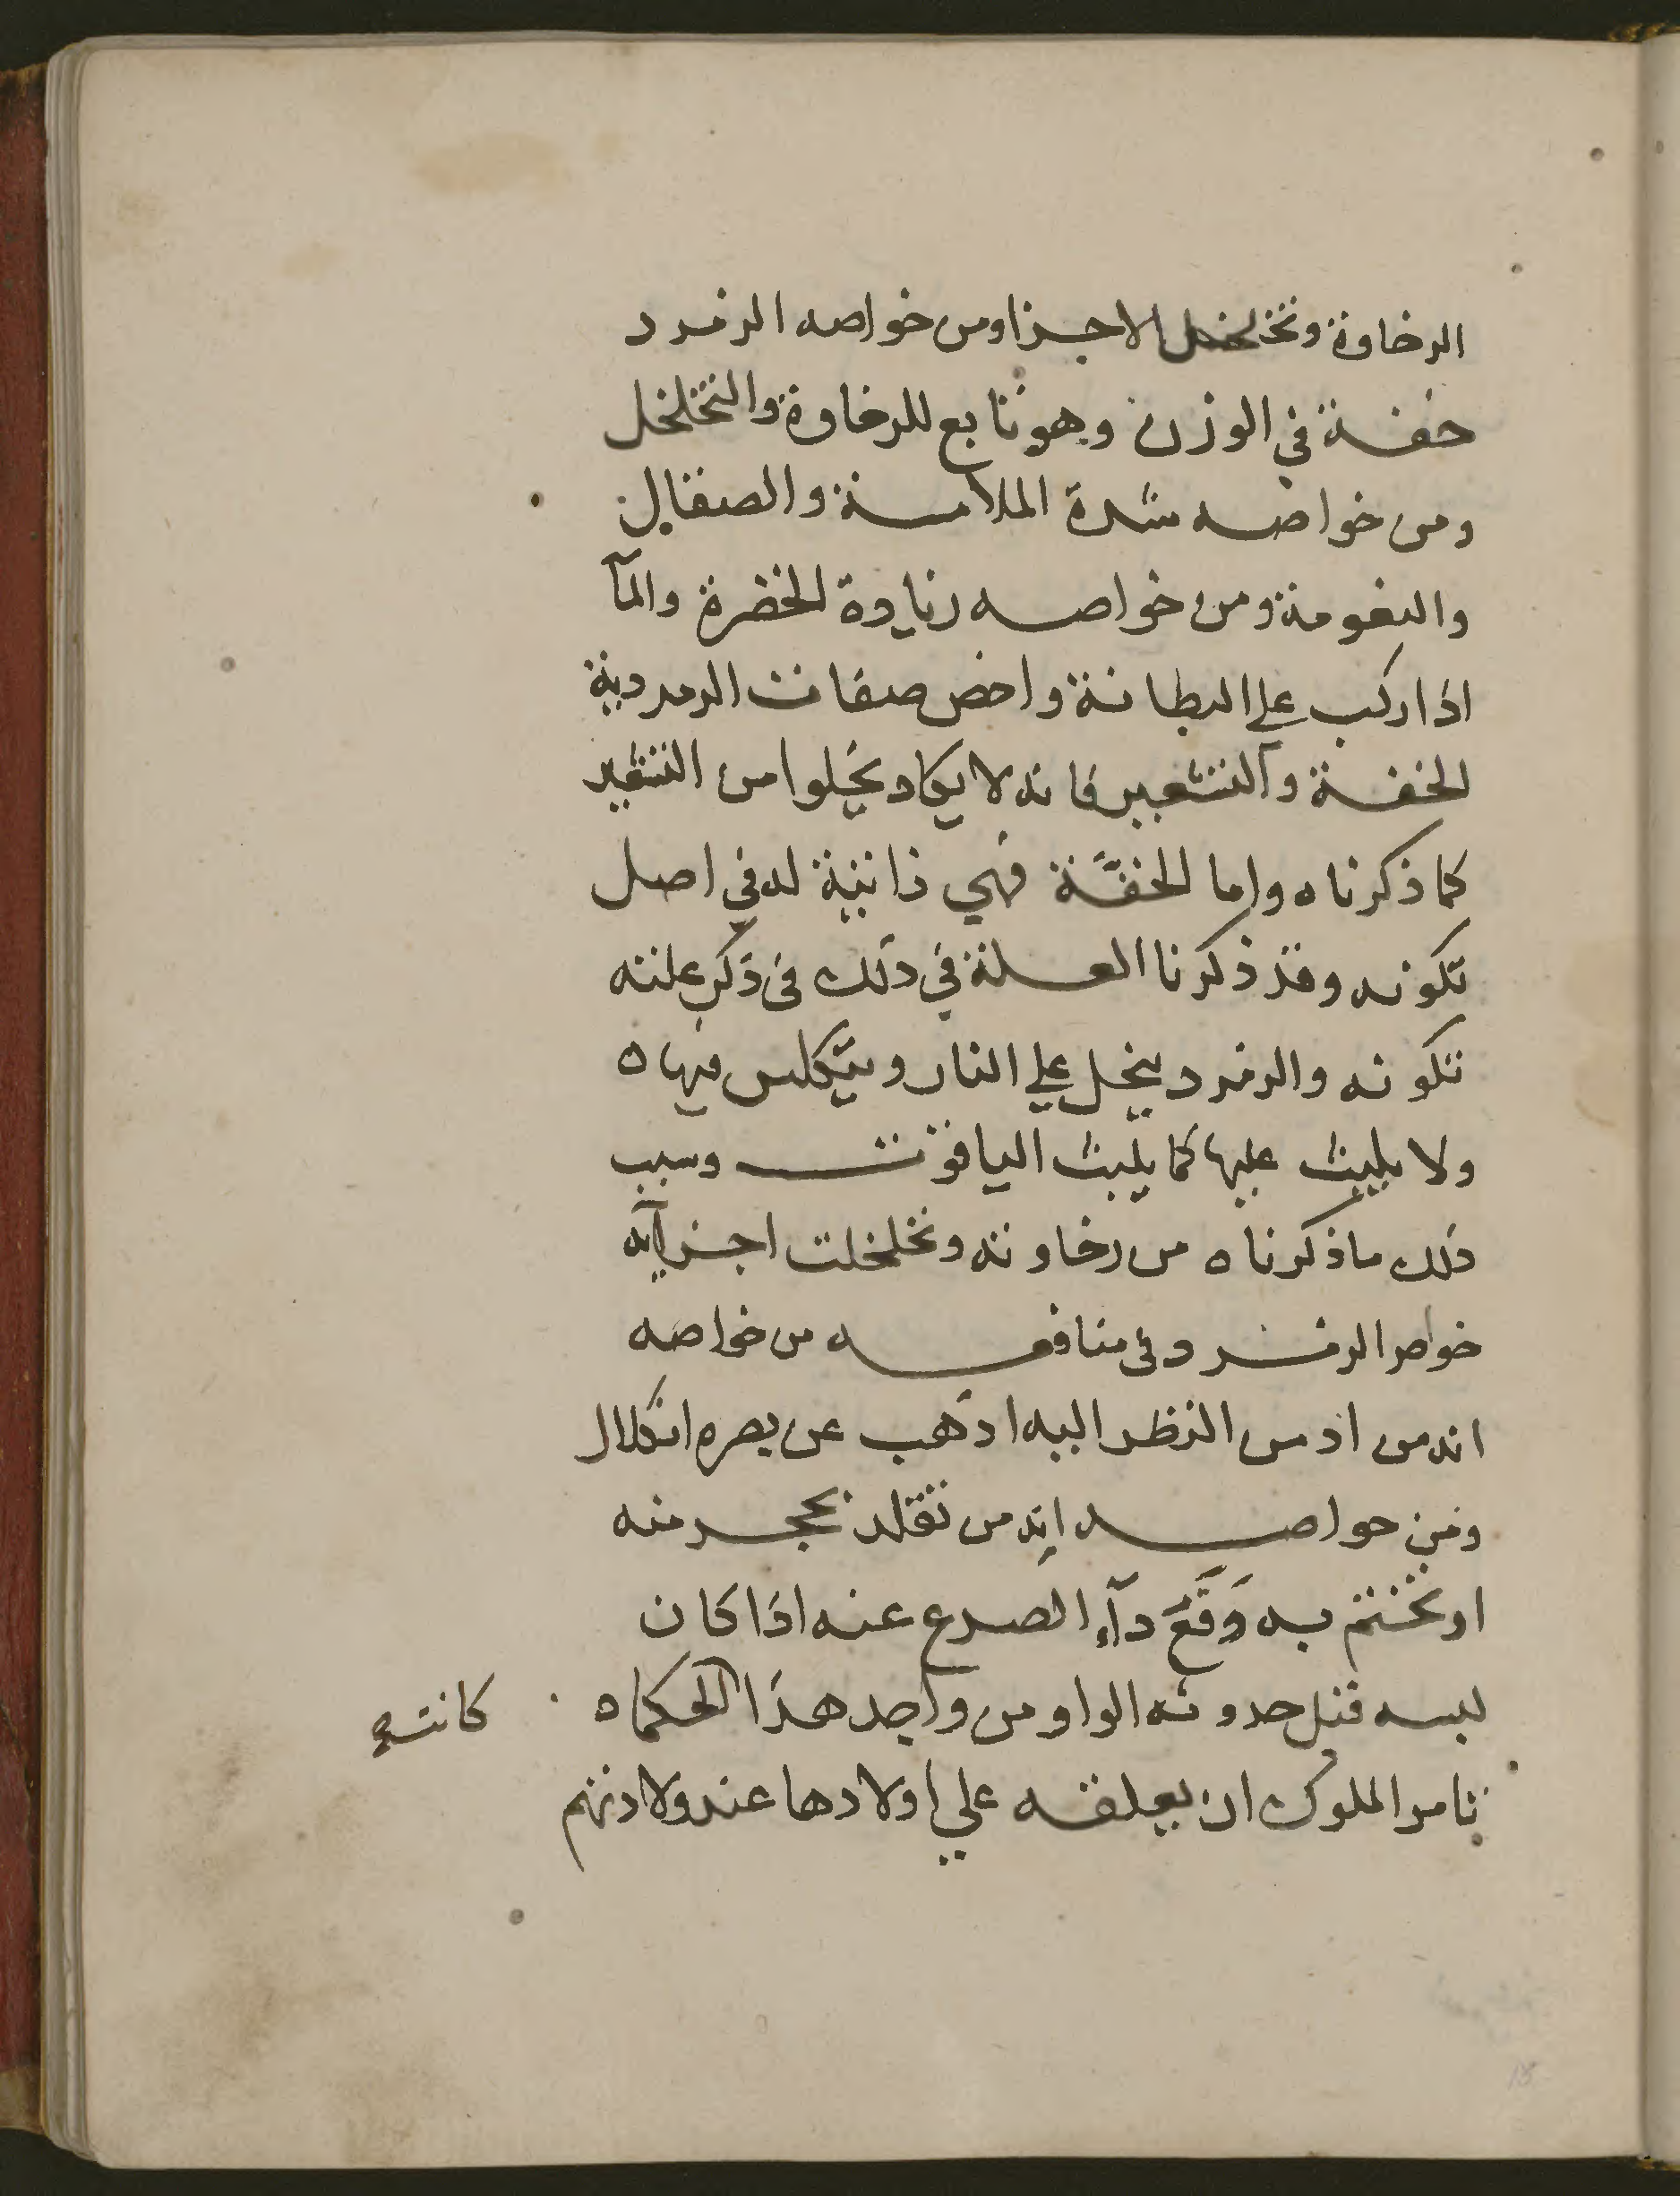 الرخاوة وتخلخل الاجزا ومن خواصه الزمرد
خفة في الوزن وهو تابع للرخاوة والتخلخل
ومن خواصه شدة الملامسة والصقال
والنعومة ومن خواصه زيادة الخضرة والمآ
اذا ركب علي البطانة واخص صفات الزمردية
الخفة والتشعير فانه لا يكاد يخلوا من التشعير
كما ذكرناه واما الخفَّة فهي ذاتية له في اصل
تكونه وقد ذكرنا العلة في ذلك في ذكر علته
تكونه والزمرد ينحل علي النار ويتكلس فيها ه
ولا يلبث عليها كما يلبث الياقوت وسبب
ذلك ما ذكرناه من رخاوته وتخلخلت اجزآيه
خواص الزمرد في منافعه من خواصه
انه من ادمن النظر اليه اذهب عن بصره الكلال
ومن خواصه انه من تقلد بحجر منه
او تختم به وَقَعَ دآء الصرع عنه اذا كان
لبسه قبل حدوثه الواو من واجد هذا الحكما ه
كانت
تامر الملوك ان يعلقه علي اولادها عند ولادتهم